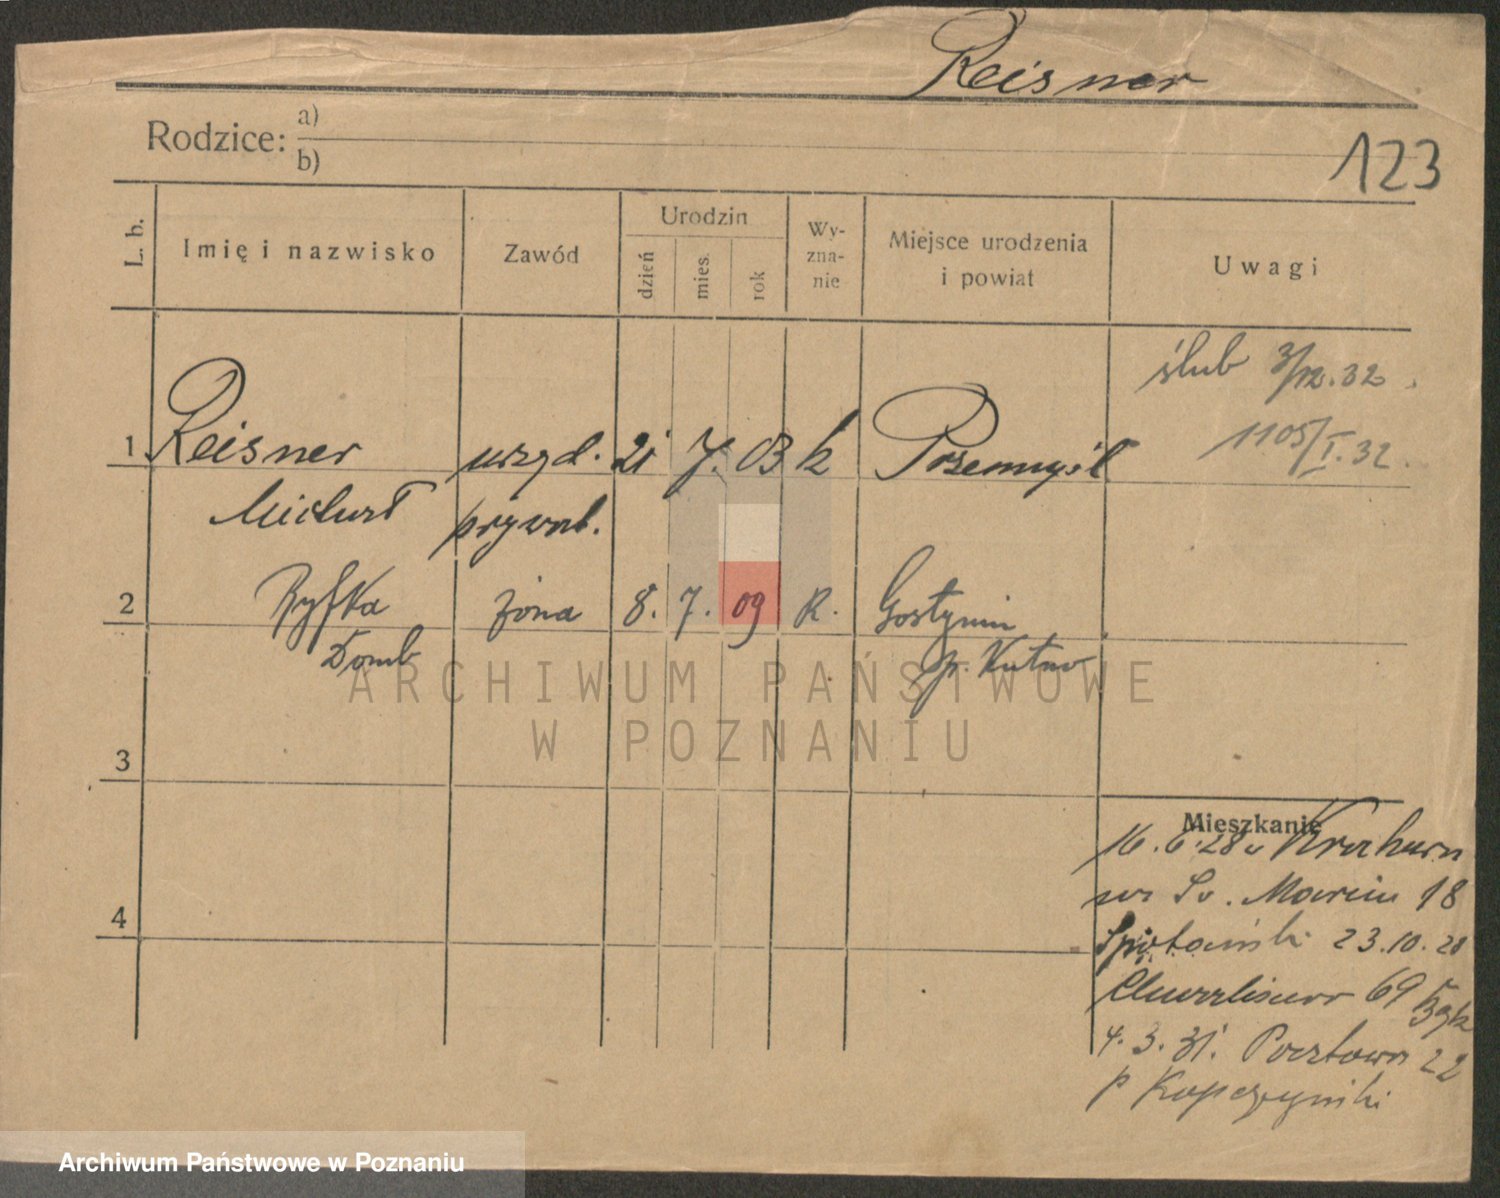 Reisner
123
Rodzice: a)
b)
L. b. Imię i nazwisko Zawód Urodzin dzień mies. rok Wy-zna-nie Miejsce urodzenia i powiat Uwagi
ślub 3/12.32.
1105/I.32.
1 Reisner urzęd. 21 7. 03 k Przemyśl
prywat.
2 Ryfka żona 8. 7. 09 R. Gostynin
Domb p. Kutno
3
4
Mieszkanie
16.6.28 Kraków
Św. Marcin 18
23.10.28
69
4.3.31. Pocztowa 22
p Kopczyński
ARCHIWUM PAŃSTWOWE
W POZNANIU
Archiwum Państwowe w Poznaniu